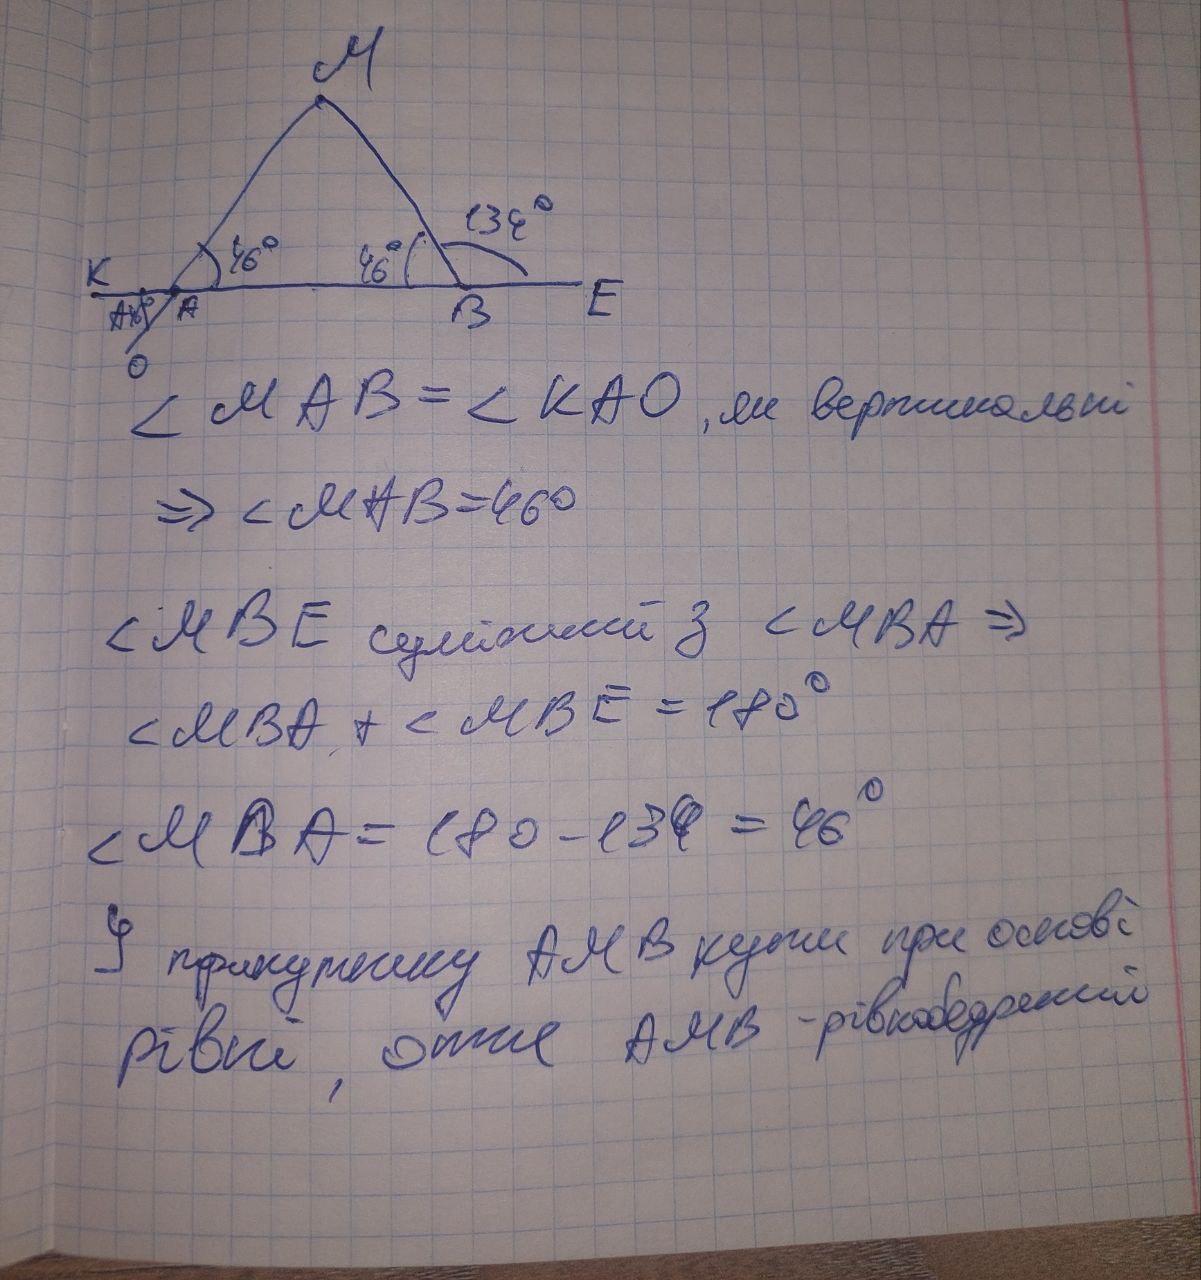 M
134°
46°
46°
K
A
B
E
O
< MAB = < KAO, як вертикальні
=> < MAB = 46°
< MBE суміжний з < MBA =>
< MBA + < MBE = 180°
< MBA = 180 - 134 = 46°
У трикутнику AMB кути при основі
рівні, отже AMB - рівнобедрений